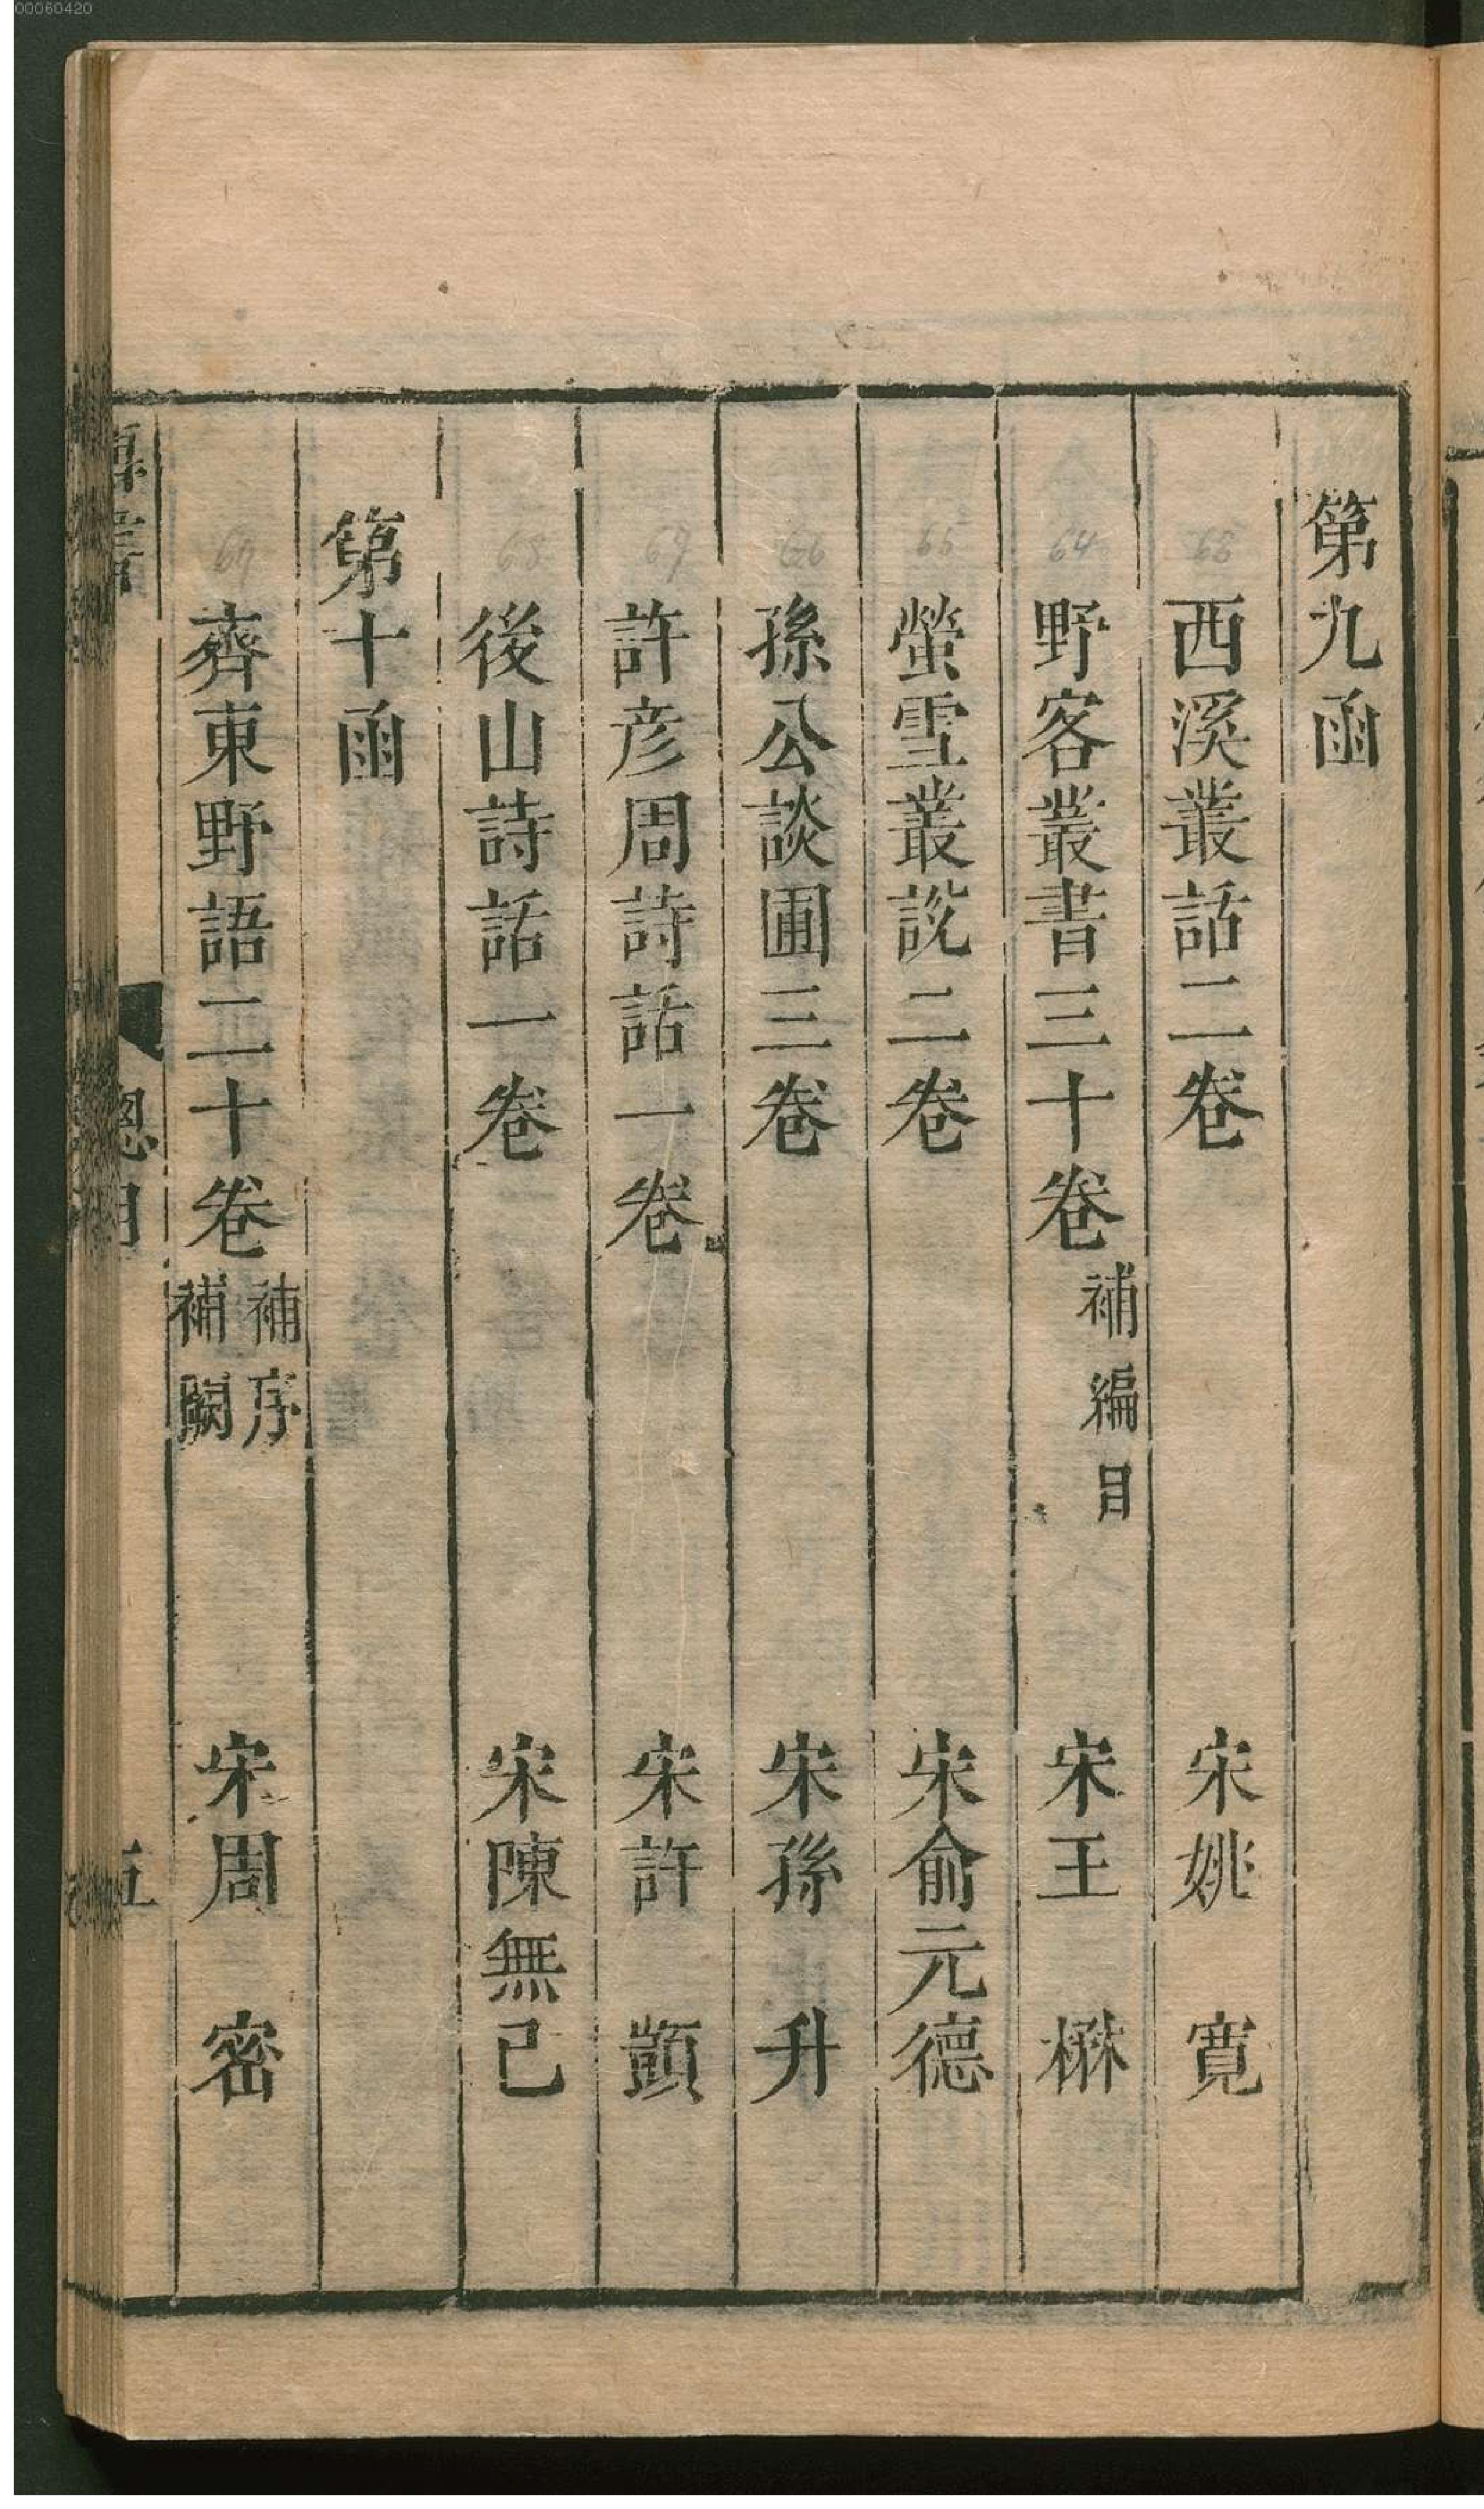 00060420
第九函
63
西溪叢話二卷 宋姚 寬
64
野客叢書三十卷 補編目 宋王 楙
65
螢雪叢說二卷 宋俞元德
66
孫公談圃三卷 宋孫 升
67
許彦周詩話一卷 宋許 顗
68
後山詩話一卷 宋陳無己
第十函
齊東野語二十卷 補序 補闕 宋周 密
總目
五